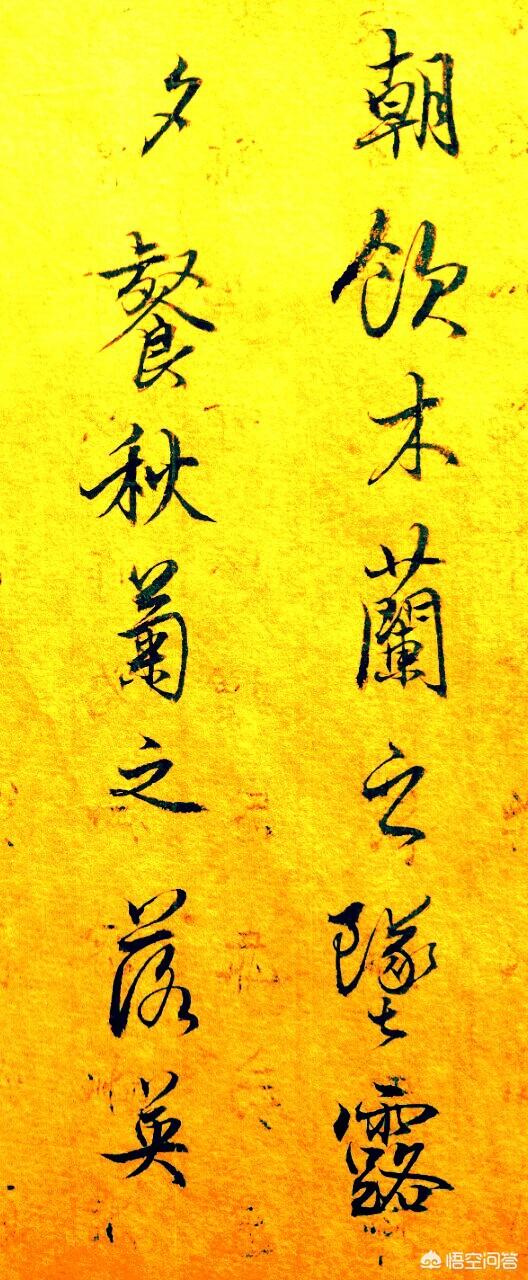 朝飲木蘭之墜露
夕餐秋菊之落英
悟空问答